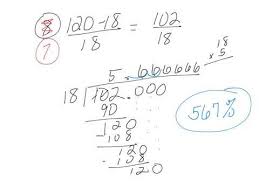 8 7 120-18/18 = 102/18
5.666666
18 ×5
18⟌102.000
90
120
-108
120
-108
120
567%